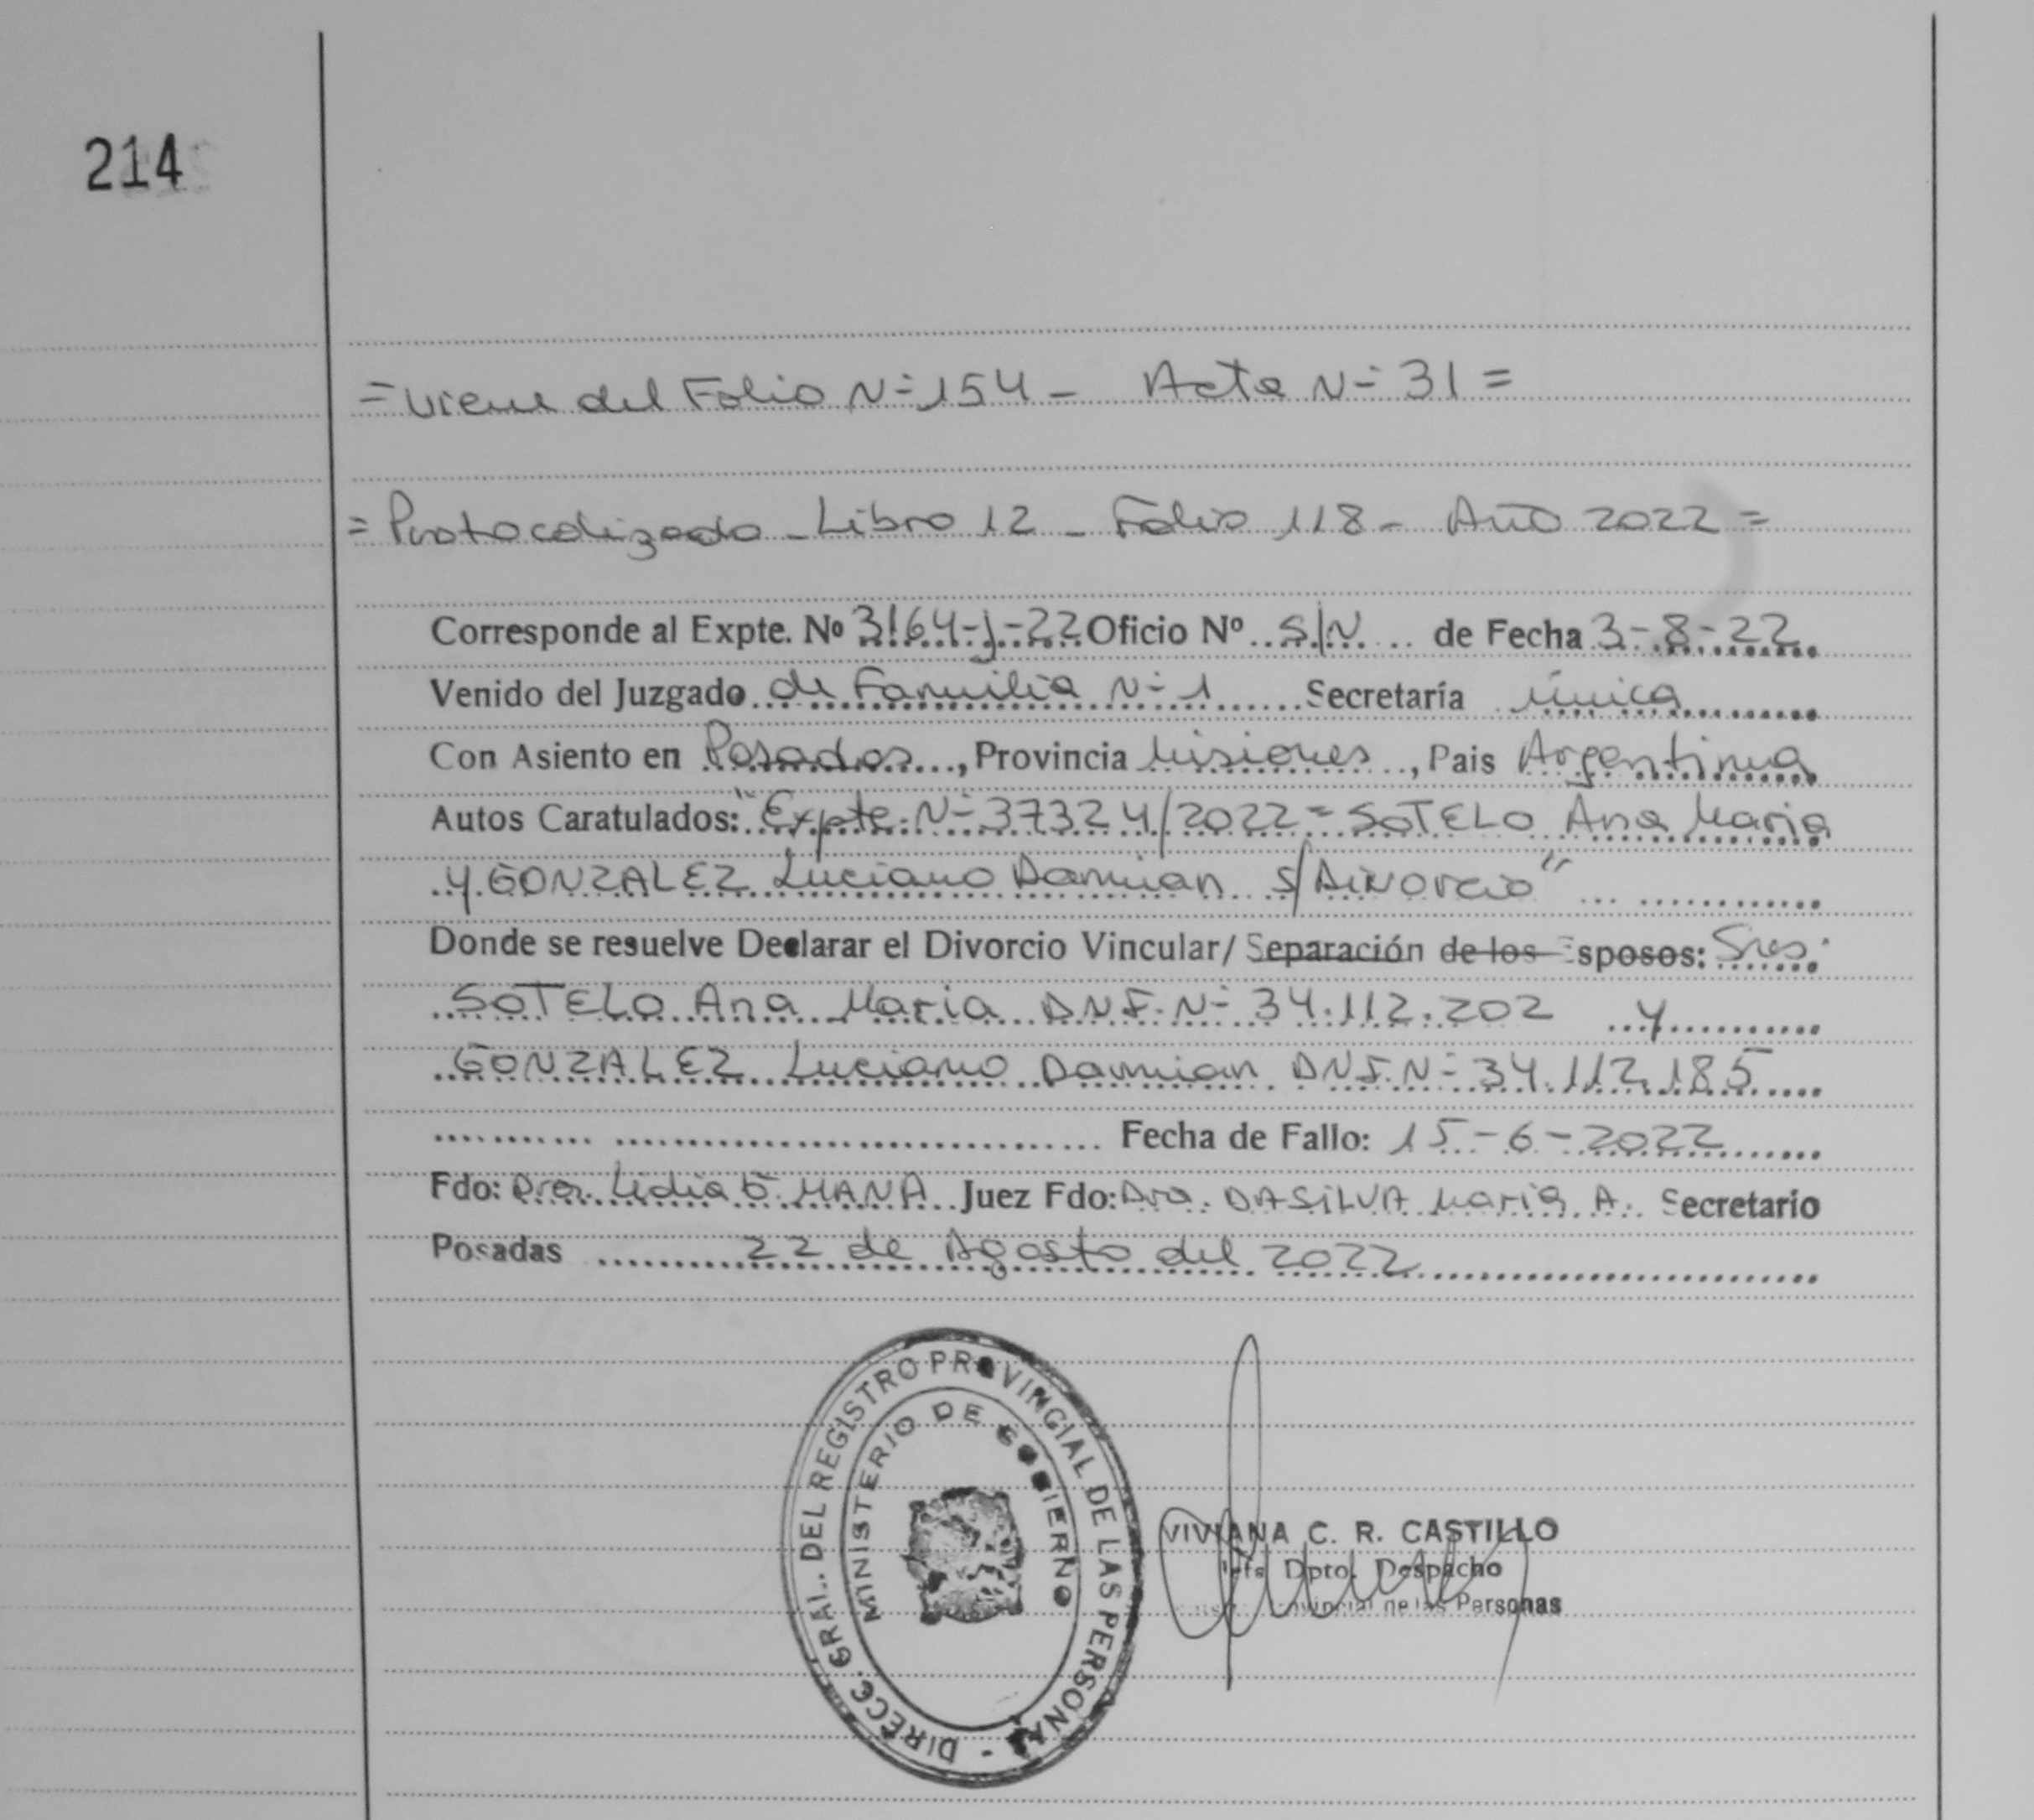 214
= Viene del Folio Nº 154 - Acta Nº 31 =
= Protocolizado - Libro 12 - Folio 118 - Año 2022 =
Corresponde al Expte. Nº 3164-J-22 Oficio Nº S/N de Fecha 3-8-22
Venido del Juzgado de Familia Nº 1 Secretaría Única
Con Asiento en Posadas, Provincia Misiones, Pais Argentina
Autos Caratulados: "Expte. Nº 37324/2022 = SOTELO Ana Maria
y GONZALEZ Luciano Damian S/Divorcio"
Donde se resuelve Declarar el Divorcio Vincular/ Separación de los Esposos: Sres.
SOTELO Ana Maria DNI. Nº 34.112.202 y
GONZALEZ Luciano Damian DNI. Nº 34.112.185
Fecha de Fallo: 15-6-2022
Fdo: Dra. Lidia MANA Juez Fdo: Dra. DASILVA Maria A. Secretario
Posadas 22 de Agosto del 2022
DIRECC. GRAL. DEL REGISTRO PROVINCIAL DE LAS PERSONAS -
MINISTERIO DE GOBIERNO
VIVIANA C. R. CASTILLO
Jefe Dpto. Despacho
Provincial de las Personas